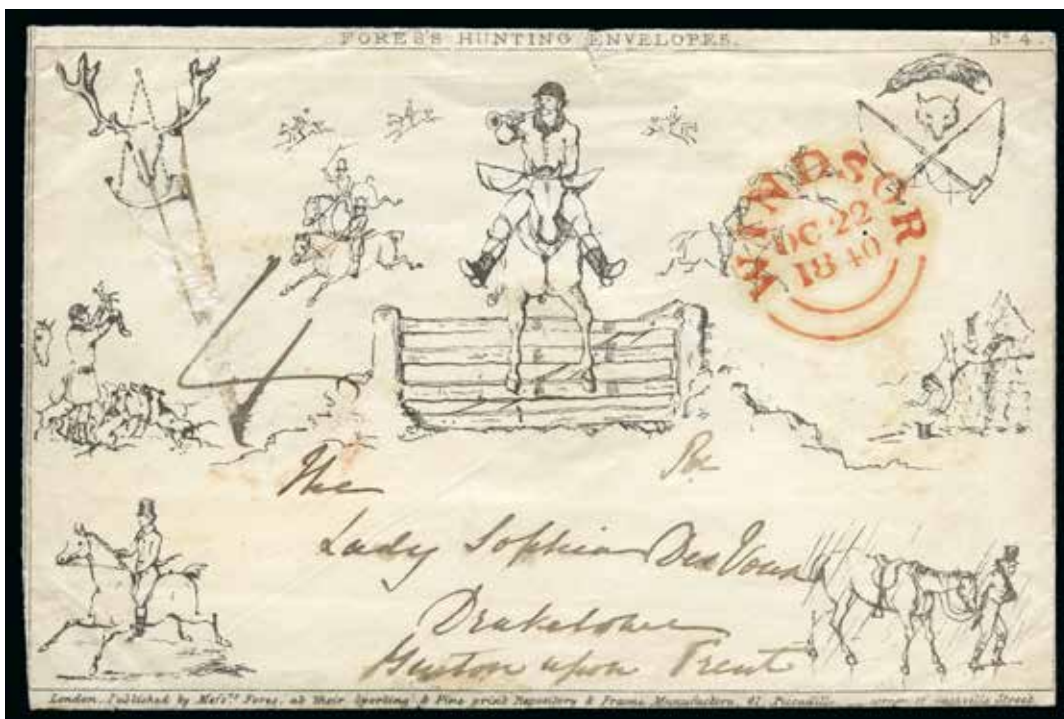 FORES'S HUNTING ENVELOPES.
No 4.
WINDSOR
OC 22
1840
4
The
Lady Sophia Des Voeux
Drakelowe
Burton upon Trent
London, Published by Messrs Fores, at their Sporting & Fine print Repository & Frame Manufactory, 41 Piccadilly, corner of Sackville Street